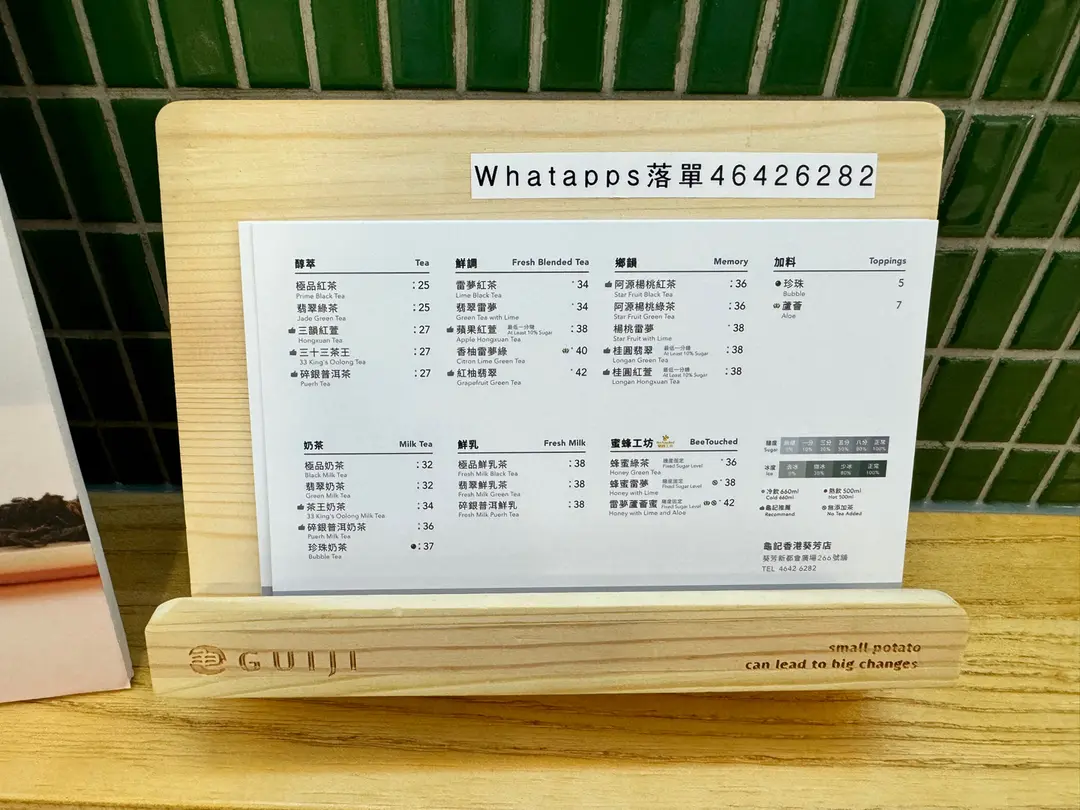 Whatapps落單46426282
醇萃 Tea
極品紅茶 :25
Prime Black Tea
翡翠綠茶 :25
Jade Green Tea
三韻紅萱 :27
Hongxuan Tea
三十三茶王 :27
33 King's Oolong Tea
碎銀普洱茶 :27
Puerh Tea
鮮調 Fresh Blended Tea
雷夢紅茶 34
Lime Black Tea
翡翠雷夢 34
Green Tea with Lime
蘋果紅萱 最低一分糖 At Least 10% Sugar :38
Apple Hongxuan Tea
香柚雷夢綠 40
Citron Lime Green Tea
紅柚翡翠 42
Grapefruit Green Tea
鄉韻 Memory
阿源楊桃紅茶 :36
Star Fruit Black Tea
阿源楊桃綠茶 :36
Star Fruit Green Tea
楊桃雷夢 38
Star Fruit with Lime
桂圓翡翠 最低一分糖 At Least 10% Sugar :38
Longan Green Tea
桂圓紅萱 最低一分糖 At Least 10% Sugar :38
Longan Hongxuan Tea
加料 Toppings
珍珠 5
Bubble
蘆薈 7
Aloe
奶茶 Milk Tea
極品奶茶 :32
Black Milk Tea
翡翠奶茶 :32
Green Milk Tea
茶王奶茶 :34
33 King's Oolong Milk Tea
碎銀普洱奶茶 :36
Puerh Milk Tea
珍珠奶茶 :37
Bubble Tea
鮮乳 Fresh Milk
極品鮮乳茶 :38
Fresh Milk Black Tea
翡翠鮮乳茶 :38
Fresh Milk Green Tea
碎銀普洱鮮乳 :38
Fresh Milk Puerh Tea
蜜蜂工坊 BeeTouched
蜂蜜綠茶 糖度固定 Fixed Sugar Level 36
Honey Green Tea
蜂蜜雷夢 糖度固定 Fixed Sugar Level 38
Honey with Lime
雷夢蘆薈蜜 糖度固定 Fixed Sugar Level 42
Honey with Lime and Aloe
糖度 無糖 一分 三分 五分 八分 正常
Sugar 0% 10% 30% 50% 80% 100%
冰度 去冰 微冰 少冰 正常
Ice 0% 30% 80% 100%
冷飲 660ml 熱飲 500ml
Cold 660ml Hot 500ml
龜記推薦 無添加茶
Recommend No Tea Added
龜記香港葵芳店
葵芳新都會廣場266號舖
TEL 4642 6282
GUIJI
small potato
can lead to big changes